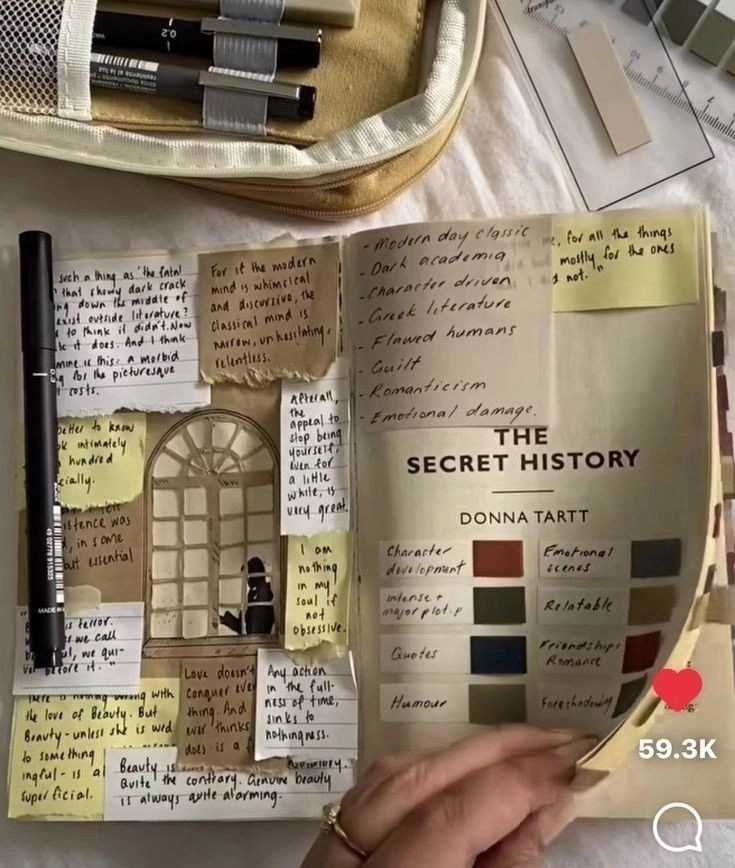 0.2
such a thing as 'the fatal
that showy dark crack
down the middle of
exist outside literature?
to think it didn't. Now
it does. And I think
mine is this: a morbid
for the picturesque
costs.
For if the modern
mind is whimsical
and discursive, the
classical mind is
narrow, unhesitating,
relentless.
better to know
intimately
hundred
cially.
istence was
, in some
but essential
is terror.
we call
, we qui-
ver before it."
After all,
the
appeal to
stop being
yourself,
even for
a little
while, is
very great.
I am
nothing
in my
soul if
not
obsessive.
There is nothing wrong with
the love of Beauty. But
Beauty - unless she is wed
to something
ingful - is al
superficial.
Love doesn't
conquer eve
thing. And
ever thinks
does is a f
Any action
in the full-
ness of time,
sinks to
nothingness.
Beauty is
Quite the contrary. Genuine beauty
is always quite alarming.
- Modern day classic
- Dark academia
- Character driven
- Greek literature
- Flawed humans
- Guilt
- Romanticism
- Emotional damage.
, for all the things
mostly for the ones
not."
THE
SECRET HISTORY
DONNA TARTT
Character
development
Emotional
scenes
intense +
major plot. p
Relatable
Quotes
Friendship;
Romance
Humour
Foreshadowing
59.3K